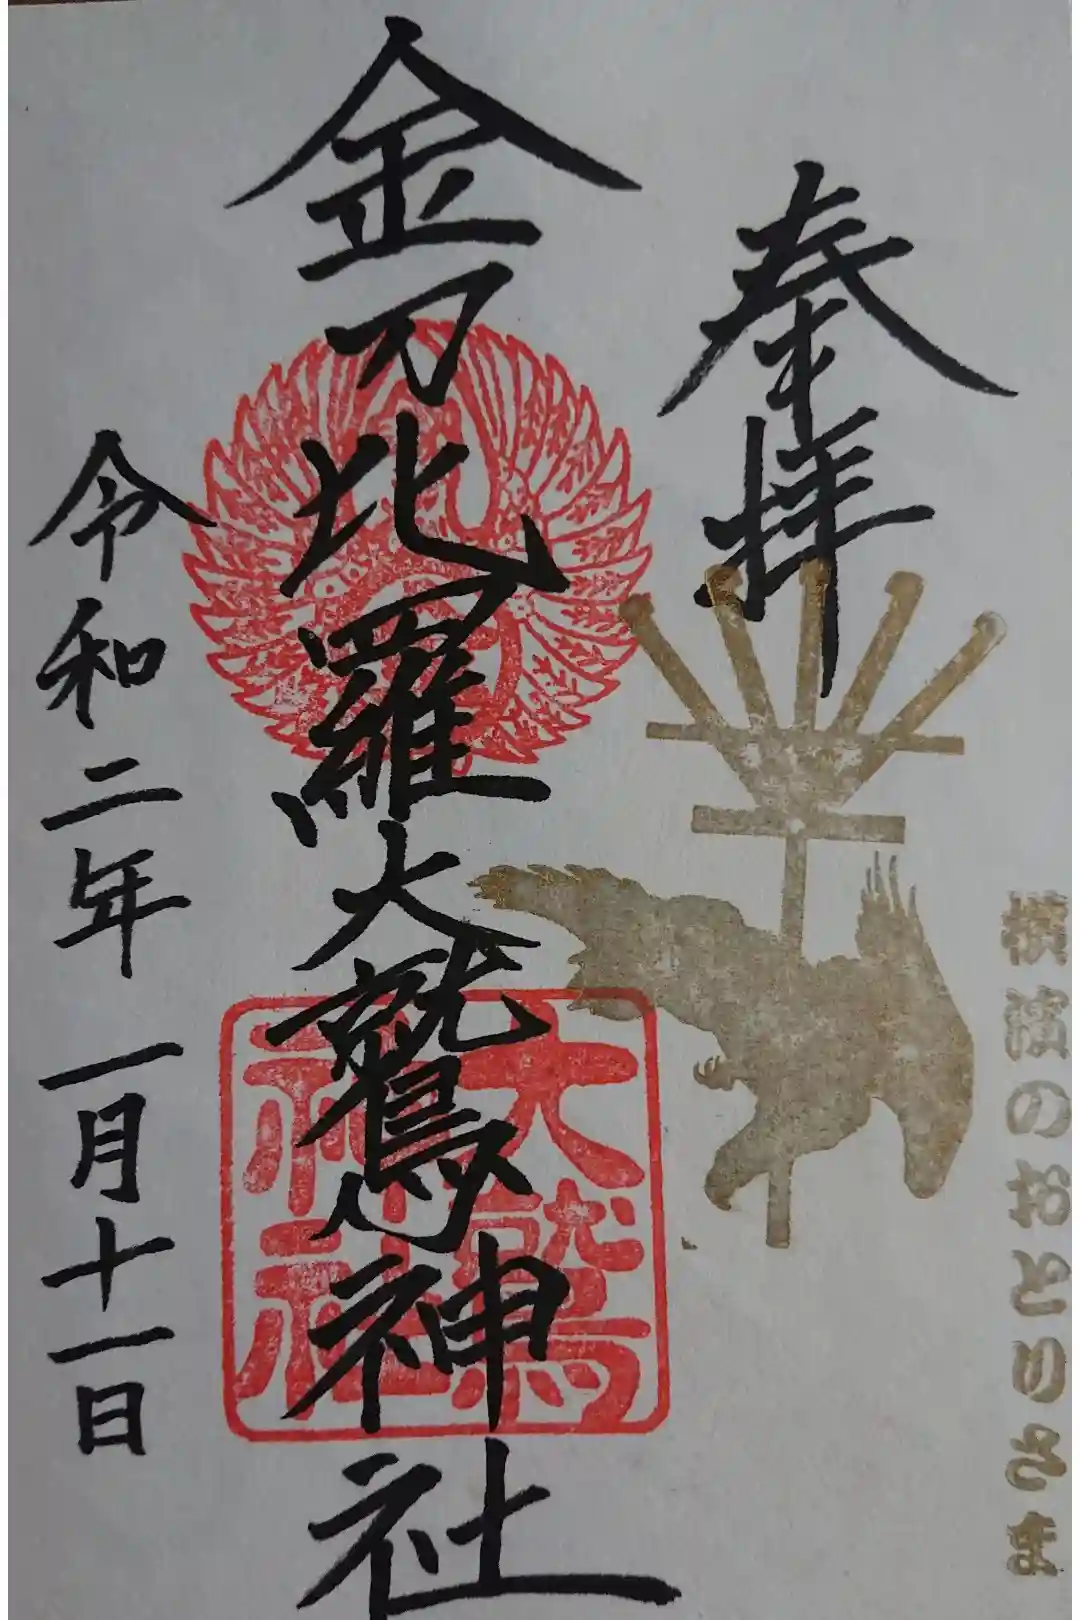 横濱のおとりさま
奉拝
金刀比羅大鷲神社
大鷲
神社
令和二年一月十一日